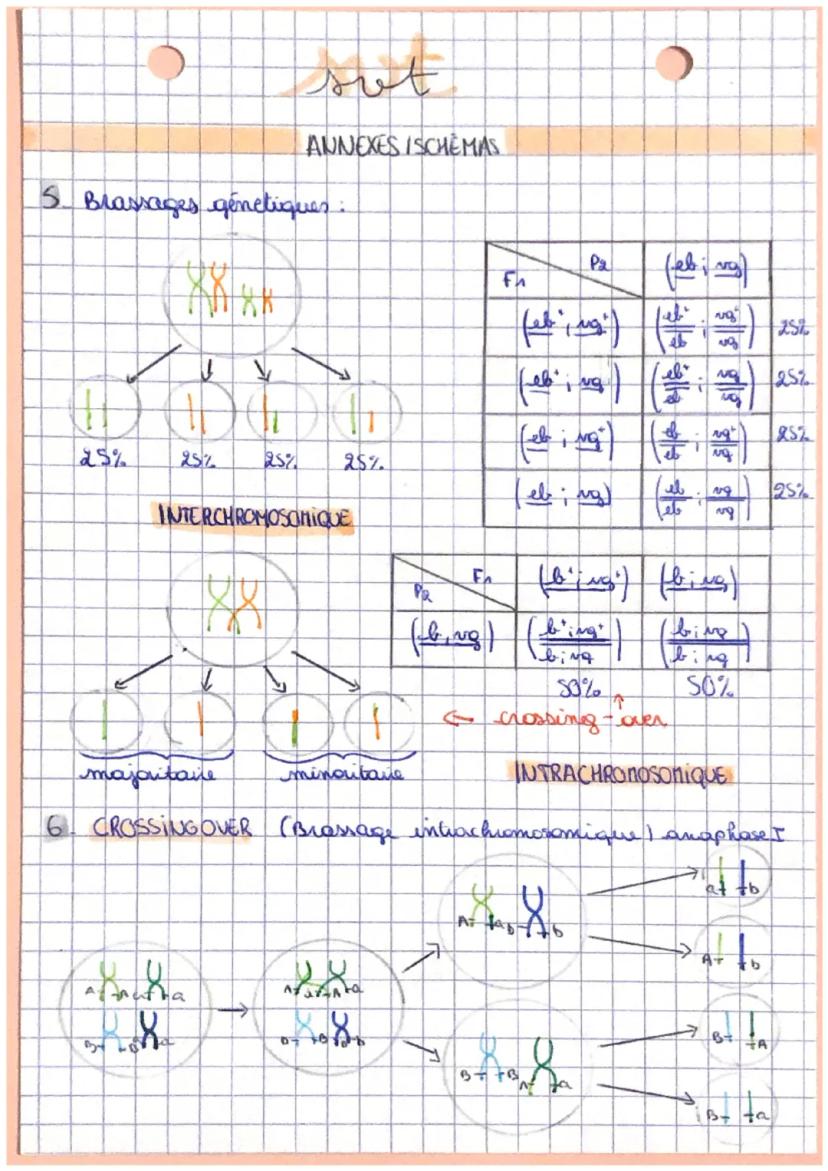 svt
ANNEXES/SCHÉMAS
5. Brassages génétiques :
F1 P2 (eb ; vg)
(eb⁺ ; vg⁺) (eb⁺/eb ; vg⁺/vg) 25%
(eb⁺ ; vg) (eb⁺/eb ; vg/vg) 25%
(eb ; vg⁺) (eb/eb ; vg⁺/vg) 25%
(eb ; vg) (eb/eb ; vg/vg) 25%
25% 25% 25% 25%
INTERCHROMOSOMIQUE
P2 F1 (b⁺ ; vg⁺) (b ; vg)
(b, vg) (b⁺ ; vg⁺/b ; vg) (b ; vg/b ; vg)
50% ↑ 50%
← crossing-over
majoritaire minoritaire
INTRACHROMOSOMIQUE
6. CROSSINGOVER (Brassage intrachromosomique) anaphase I
a b
A a b b
A b
A A a a
B B
B A
B B A a
B a